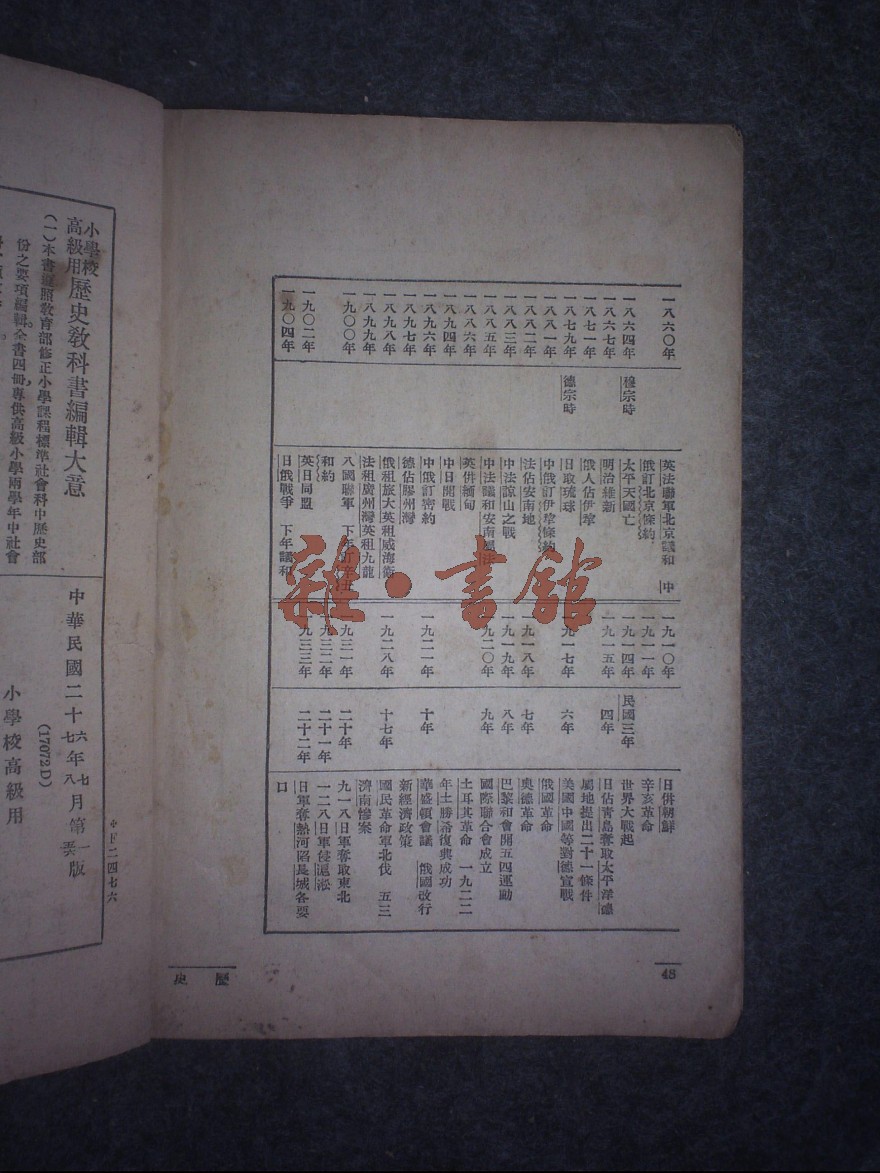 一八六〇年
一八六四年
一八六七年
一八七一年
一八七九年
一八八一年
一八八二年
一八八三年
一八八五年
一八八六年
一八九四年
一八九六年
一八九七年
一八九八年
一八九九年
一九〇〇年
一九〇二年
一九〇四年
穆宗時
德宗時
英法聯軍北京議和 中
俄訂北京條約
太平天國亡
明治維新
俄人佔伊犂
日取琉球
中俄訂伊犂條約
法佔安南地
中法諒山之戰
中法議和安南屬法
英併緬甸
中日開戰
中俄訂密約
德佔膠州灣
俄租旅大英租威海衞
法租廣州灣英租九龍
八國聯軍 下年訂辛丑
和約
英日同盟
日俄戰爭 下年議和
一九一〇年
一九一一年
一九一四年
一九一五年
一九一七年
一九一八年
一九一九年
一九二〇年
一九二一年
一九二八年
一九三一年
一九三二年
一九三三年
民國三年
四年
六年
七年
八年
九年
十年
十七年
二十年
二十一年
二十二年
日併朝鮮
辛亥革命
世界大戰起
日佔靑島奪取太平洋德
屬地提出二十一條件
美國中國等對德宣戰
俄國革命
奧德革命
巴黎和會開五四運動
國際聯合會成立
土耳其革命 一九二二
年土勝希復興成功
華盛頓會議 俄國改行
新經濟政策
國民革命軍北伐 五三
濟南慘案
九一八日軍奪取東北
一二八日軍侵滬淞
日軍奪熱河陷長城各要
口
48
歷史
雜·書館
小學校
高級用
歷史敎科書編輯大意
(一)本書遵照敎育部修正小學課程標準社會科中歷史部
份之要項編輯全書四冊專供高級小學兩學年中社會
中華民國二十六七年七八月第一版
(17072D)
小學校高級用
二四七六